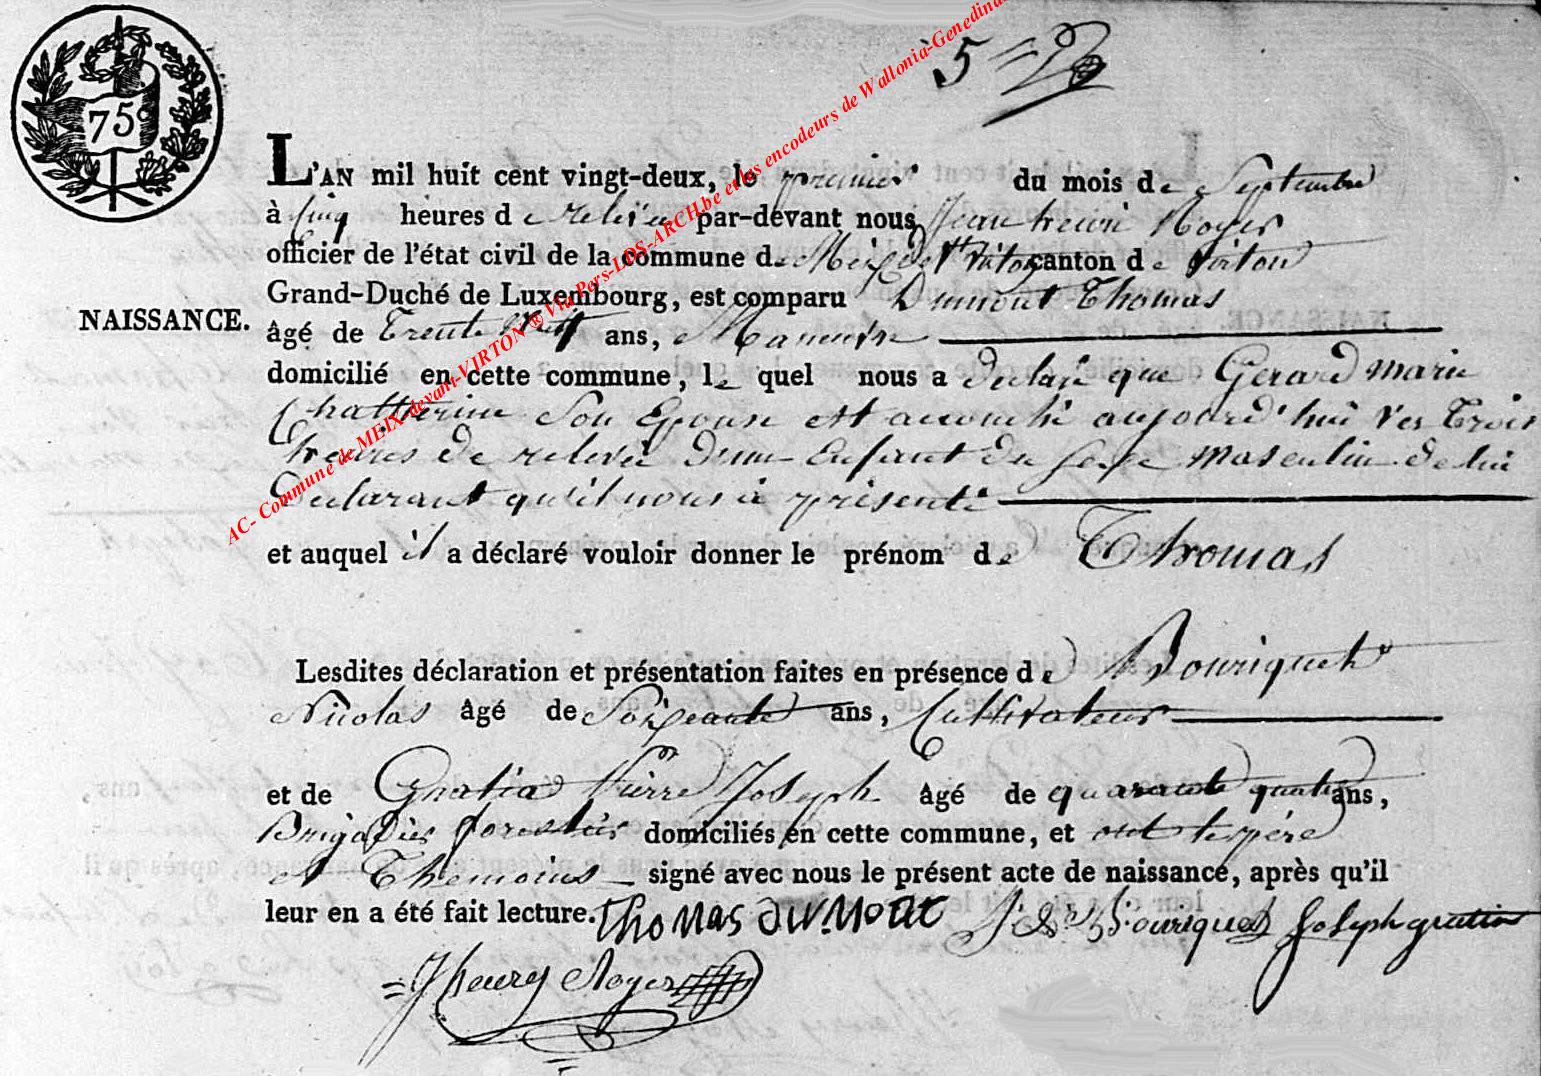 75c
5 =
L'AN mil huit cent vingt-deux, le premier du mois de Septembre
à Cinq heures de relevée par-devant nous Jean henri Roger
officier de l'état civil de la commune de Meix devt Virton canton de Virton
Grand-Duché de Luxembourg, est comparu Dumont Thomas
NAISSANCE.
âgé de Trente neuf ans, Manuvre
domicilié en cette commune, le quel nous a declaré que Gerard marie
Chatterine Son Epouse est accouché aujourd'hui ver Trois
heures de relevée d'une Enfant du Sexe masculin de lui
Declarant qu'il nous à présenté
et auquel il a déclaré vouloir donner le prénom de Thomas
Lesdites déclaration et présentation faites en présence de Bouriquet
Nicolas âgé de Soixeante ans, Cultivateur
et de Gratia Pierre Joseph âgé de quarante quatre ans,
Brigadier forestier domiciliés en cette commune, et ont les père
et Themoins signé avec nous le présent acte de naissance, après qu'il
leur en a été fait lecture. Thomas dumont Bouriquet Joseph gratia
J henry Roger
AC- Commune de MEIX-devant-VIRTON ® Via Pers-LOS-ARCH.be et les encodeurs de Wallonia-Genedinas